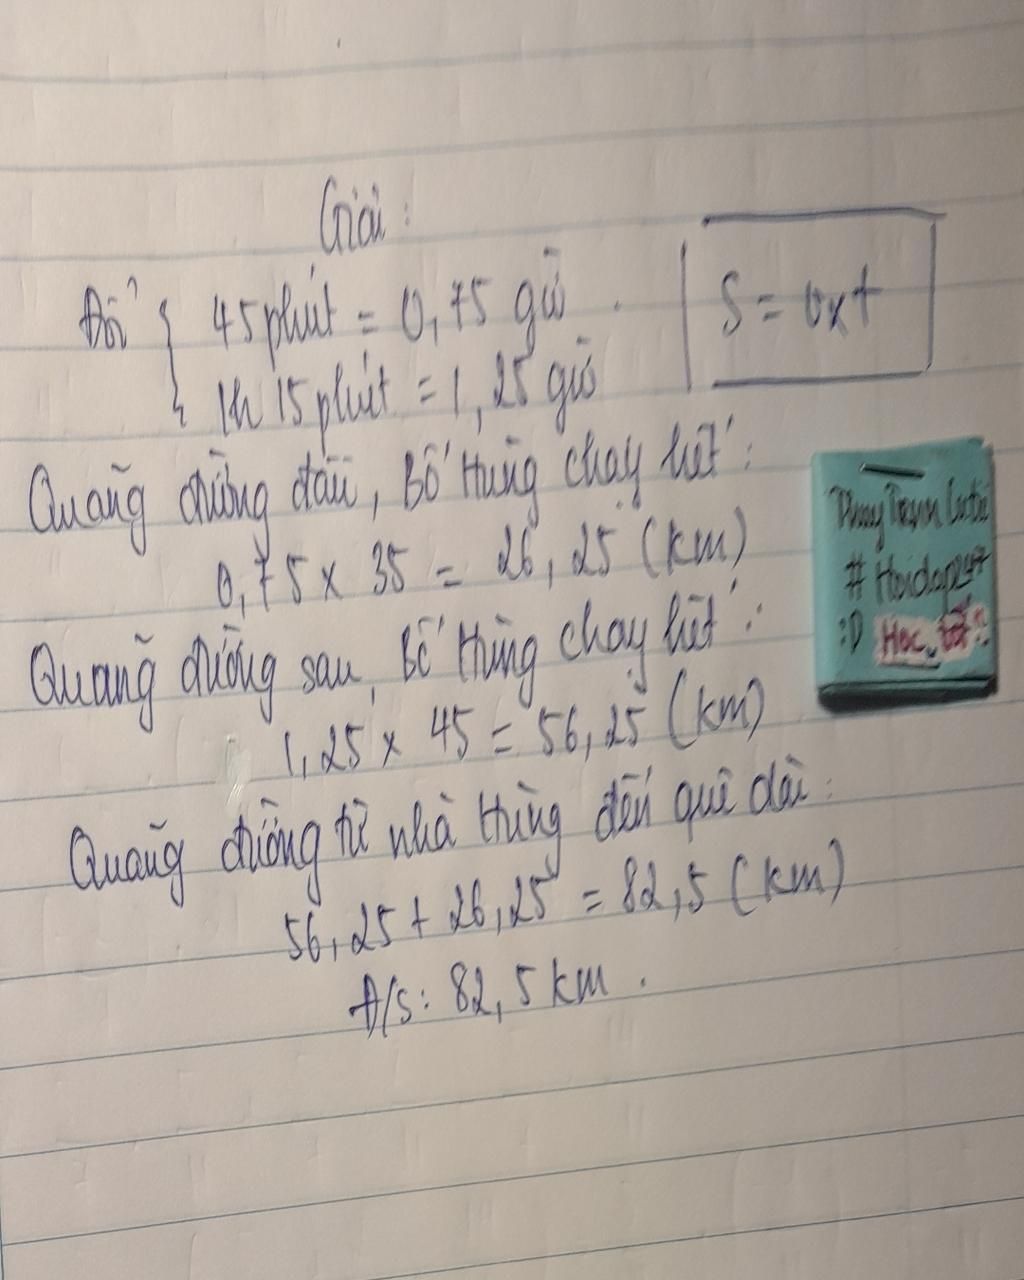 Giải:
Đổi { 45 phút = 0,75 giờ
1h 15 phút = 1,25 giờ
S = vxt
Quãng đường đầu, Bố Hùng chạy hết:
0,75 x 35 = 26,25 (km)
Quãng đường sau, Bố Hùng chạy hết:
1,25 x 45 = 56,25 (km)
Quãng đường từ nhà Hùng đến quê dài:
56,25 + 26,25 = 82,5 (km)
Đ/s: 82,5 km.
# Hoidap247
:D Học tốt